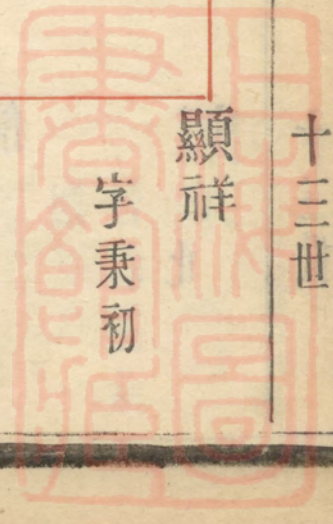 十三世
顯祥
字秉初